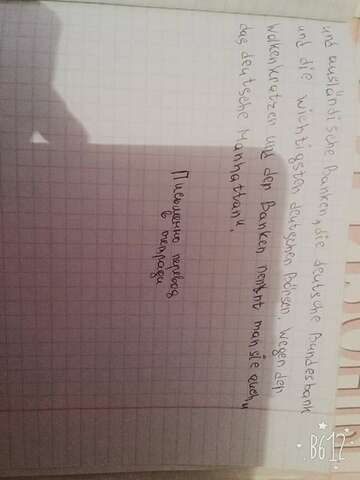 und ausländische Banken, die deutsche Bundesbank
und die wichtigsten deutschen Börsen. Wegen den
Wolkenkratzen und den Banken nennt man sie auch „
das deutsche Manhattan“.
Письменно перевод
в тетради
B612